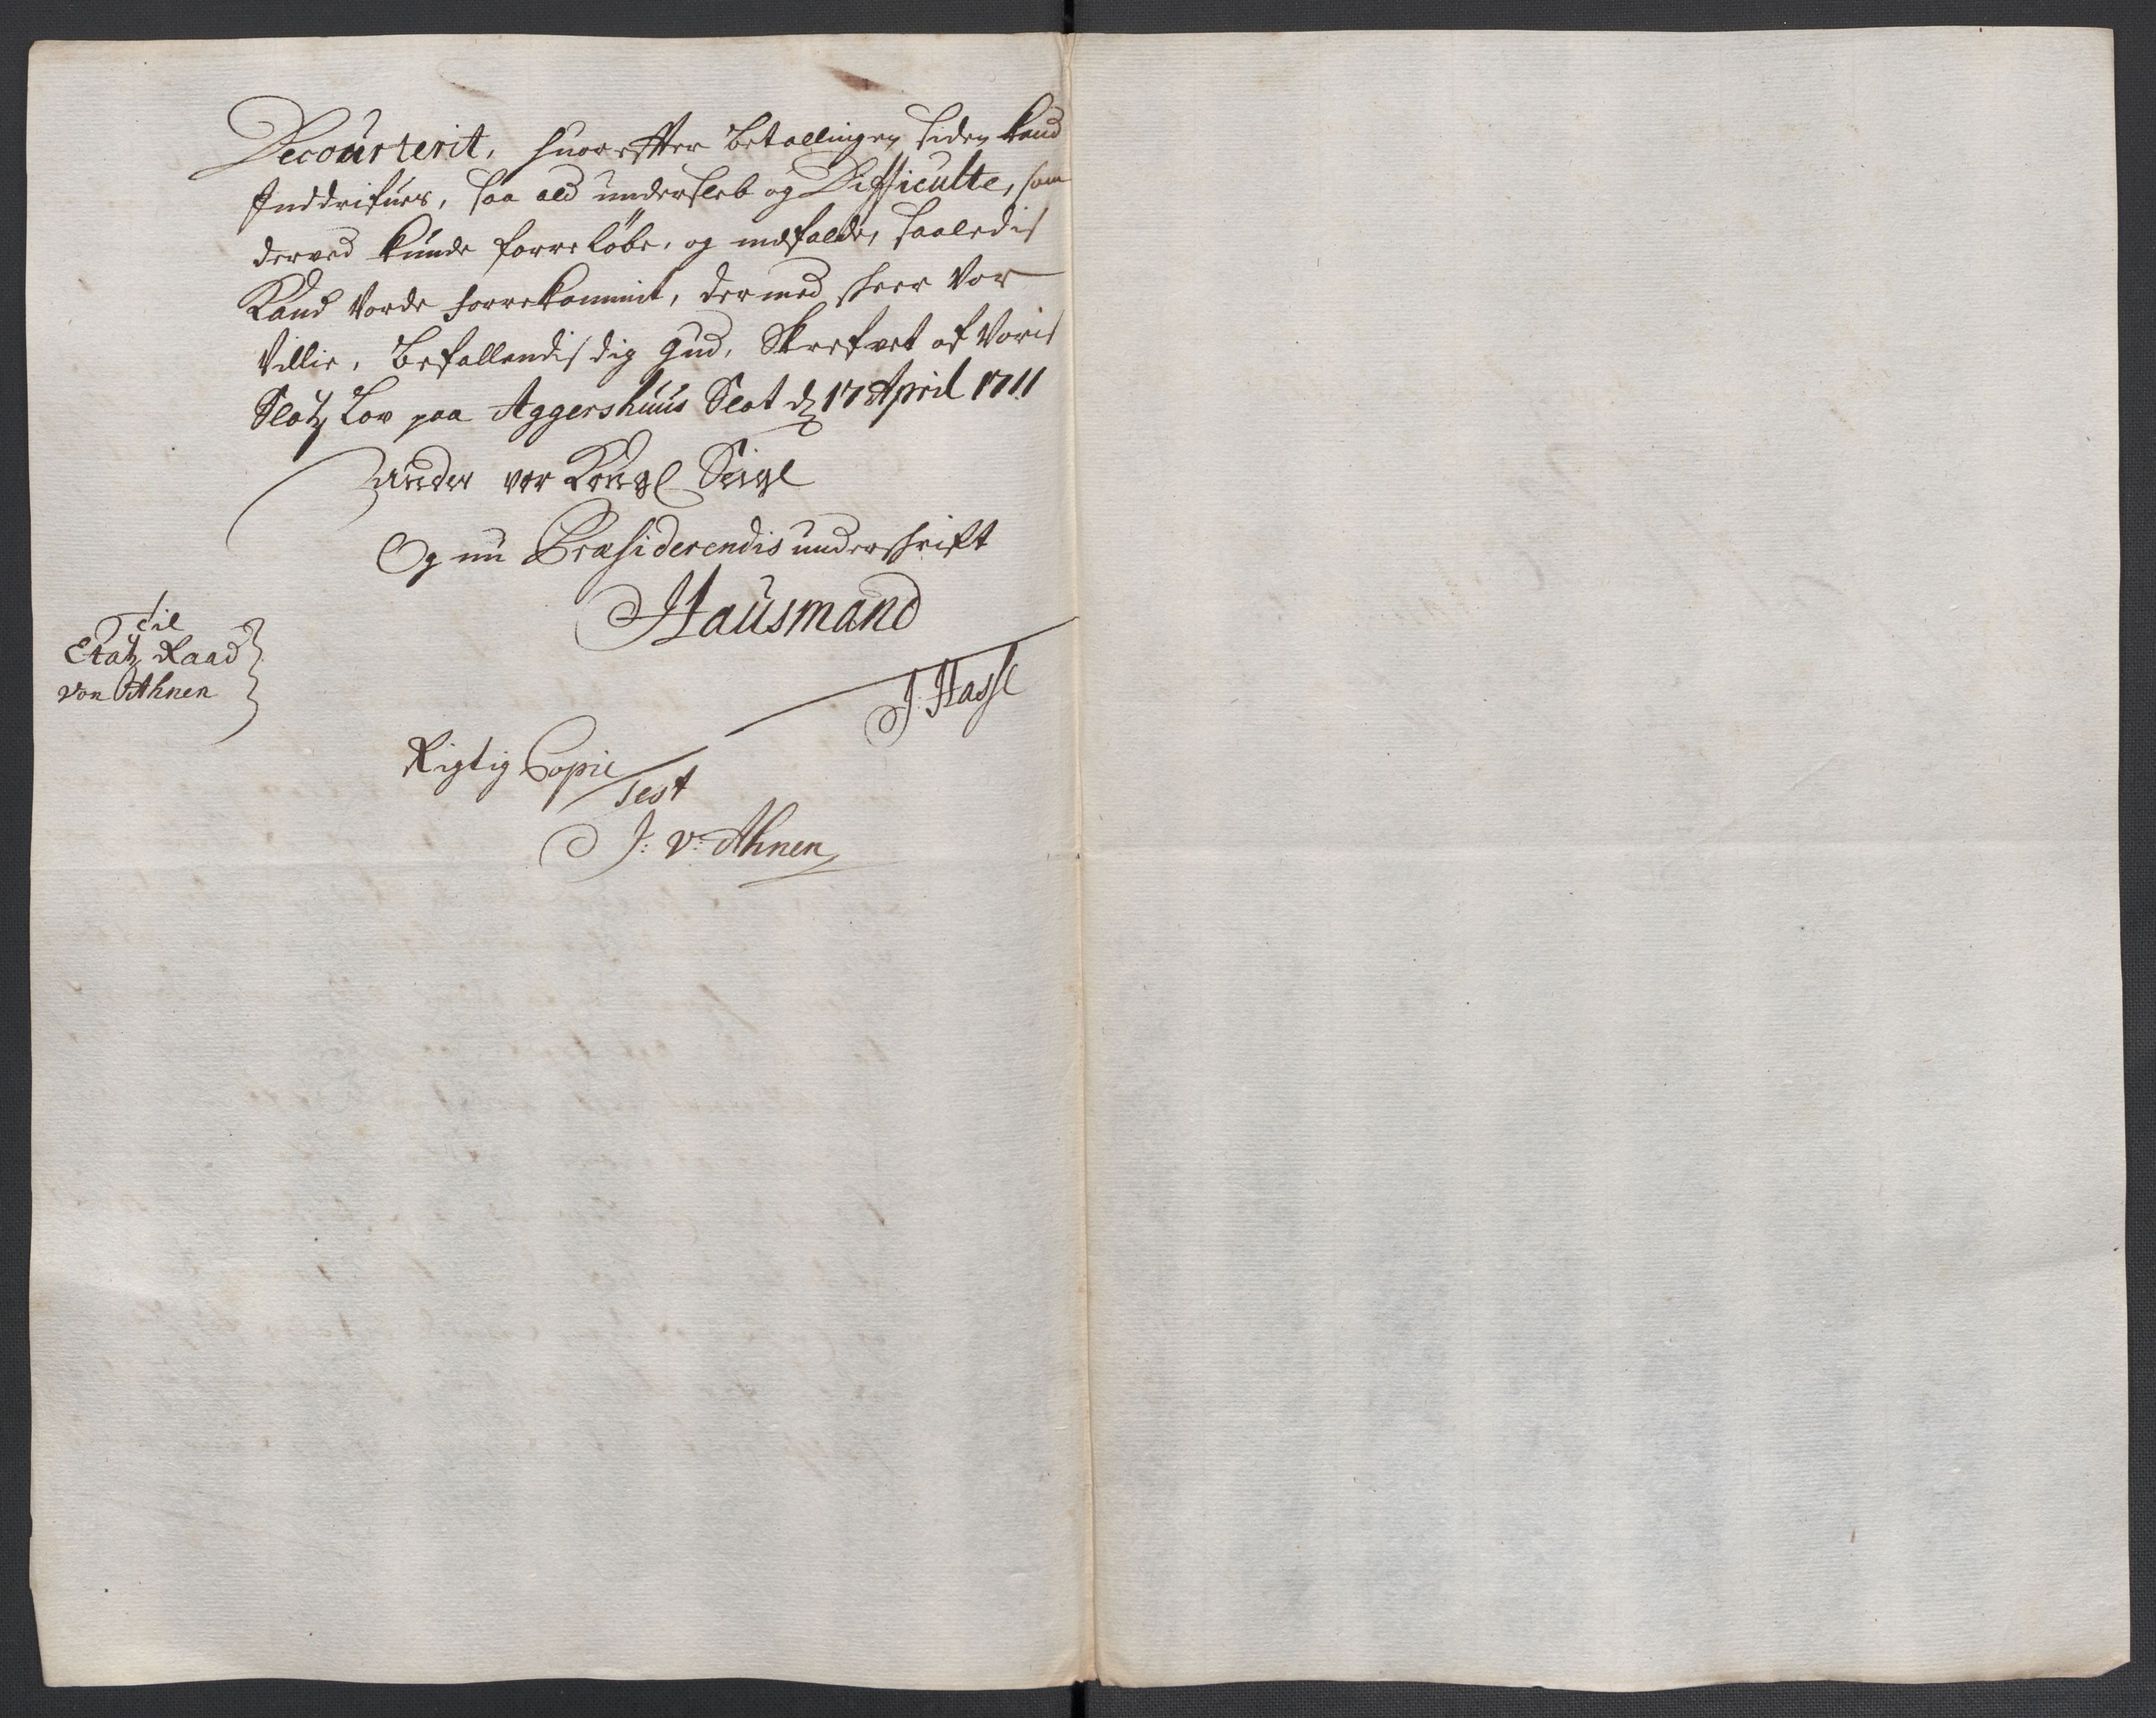 Decourterit, huorefter betallingen siden kand
Inddrifues, saa ald undersleb og Difficulte, som
derved kunde forreløbe, og indfalde, saaledis
Kand vorde forrekommit, dermed skeer Vor
Villie, Befallendis dig Gud, Skrefvet af Voris
Slotz Lov paa Aggershuus Slot d 17 April 1711
Under vor Kongl Seigl
Og nu Præsiderendis underskrift
Hausmand
Til
Etatz Raad
von Ahnen
J: Hassl
Rigtig Copie
Test
J: v: Ahnen